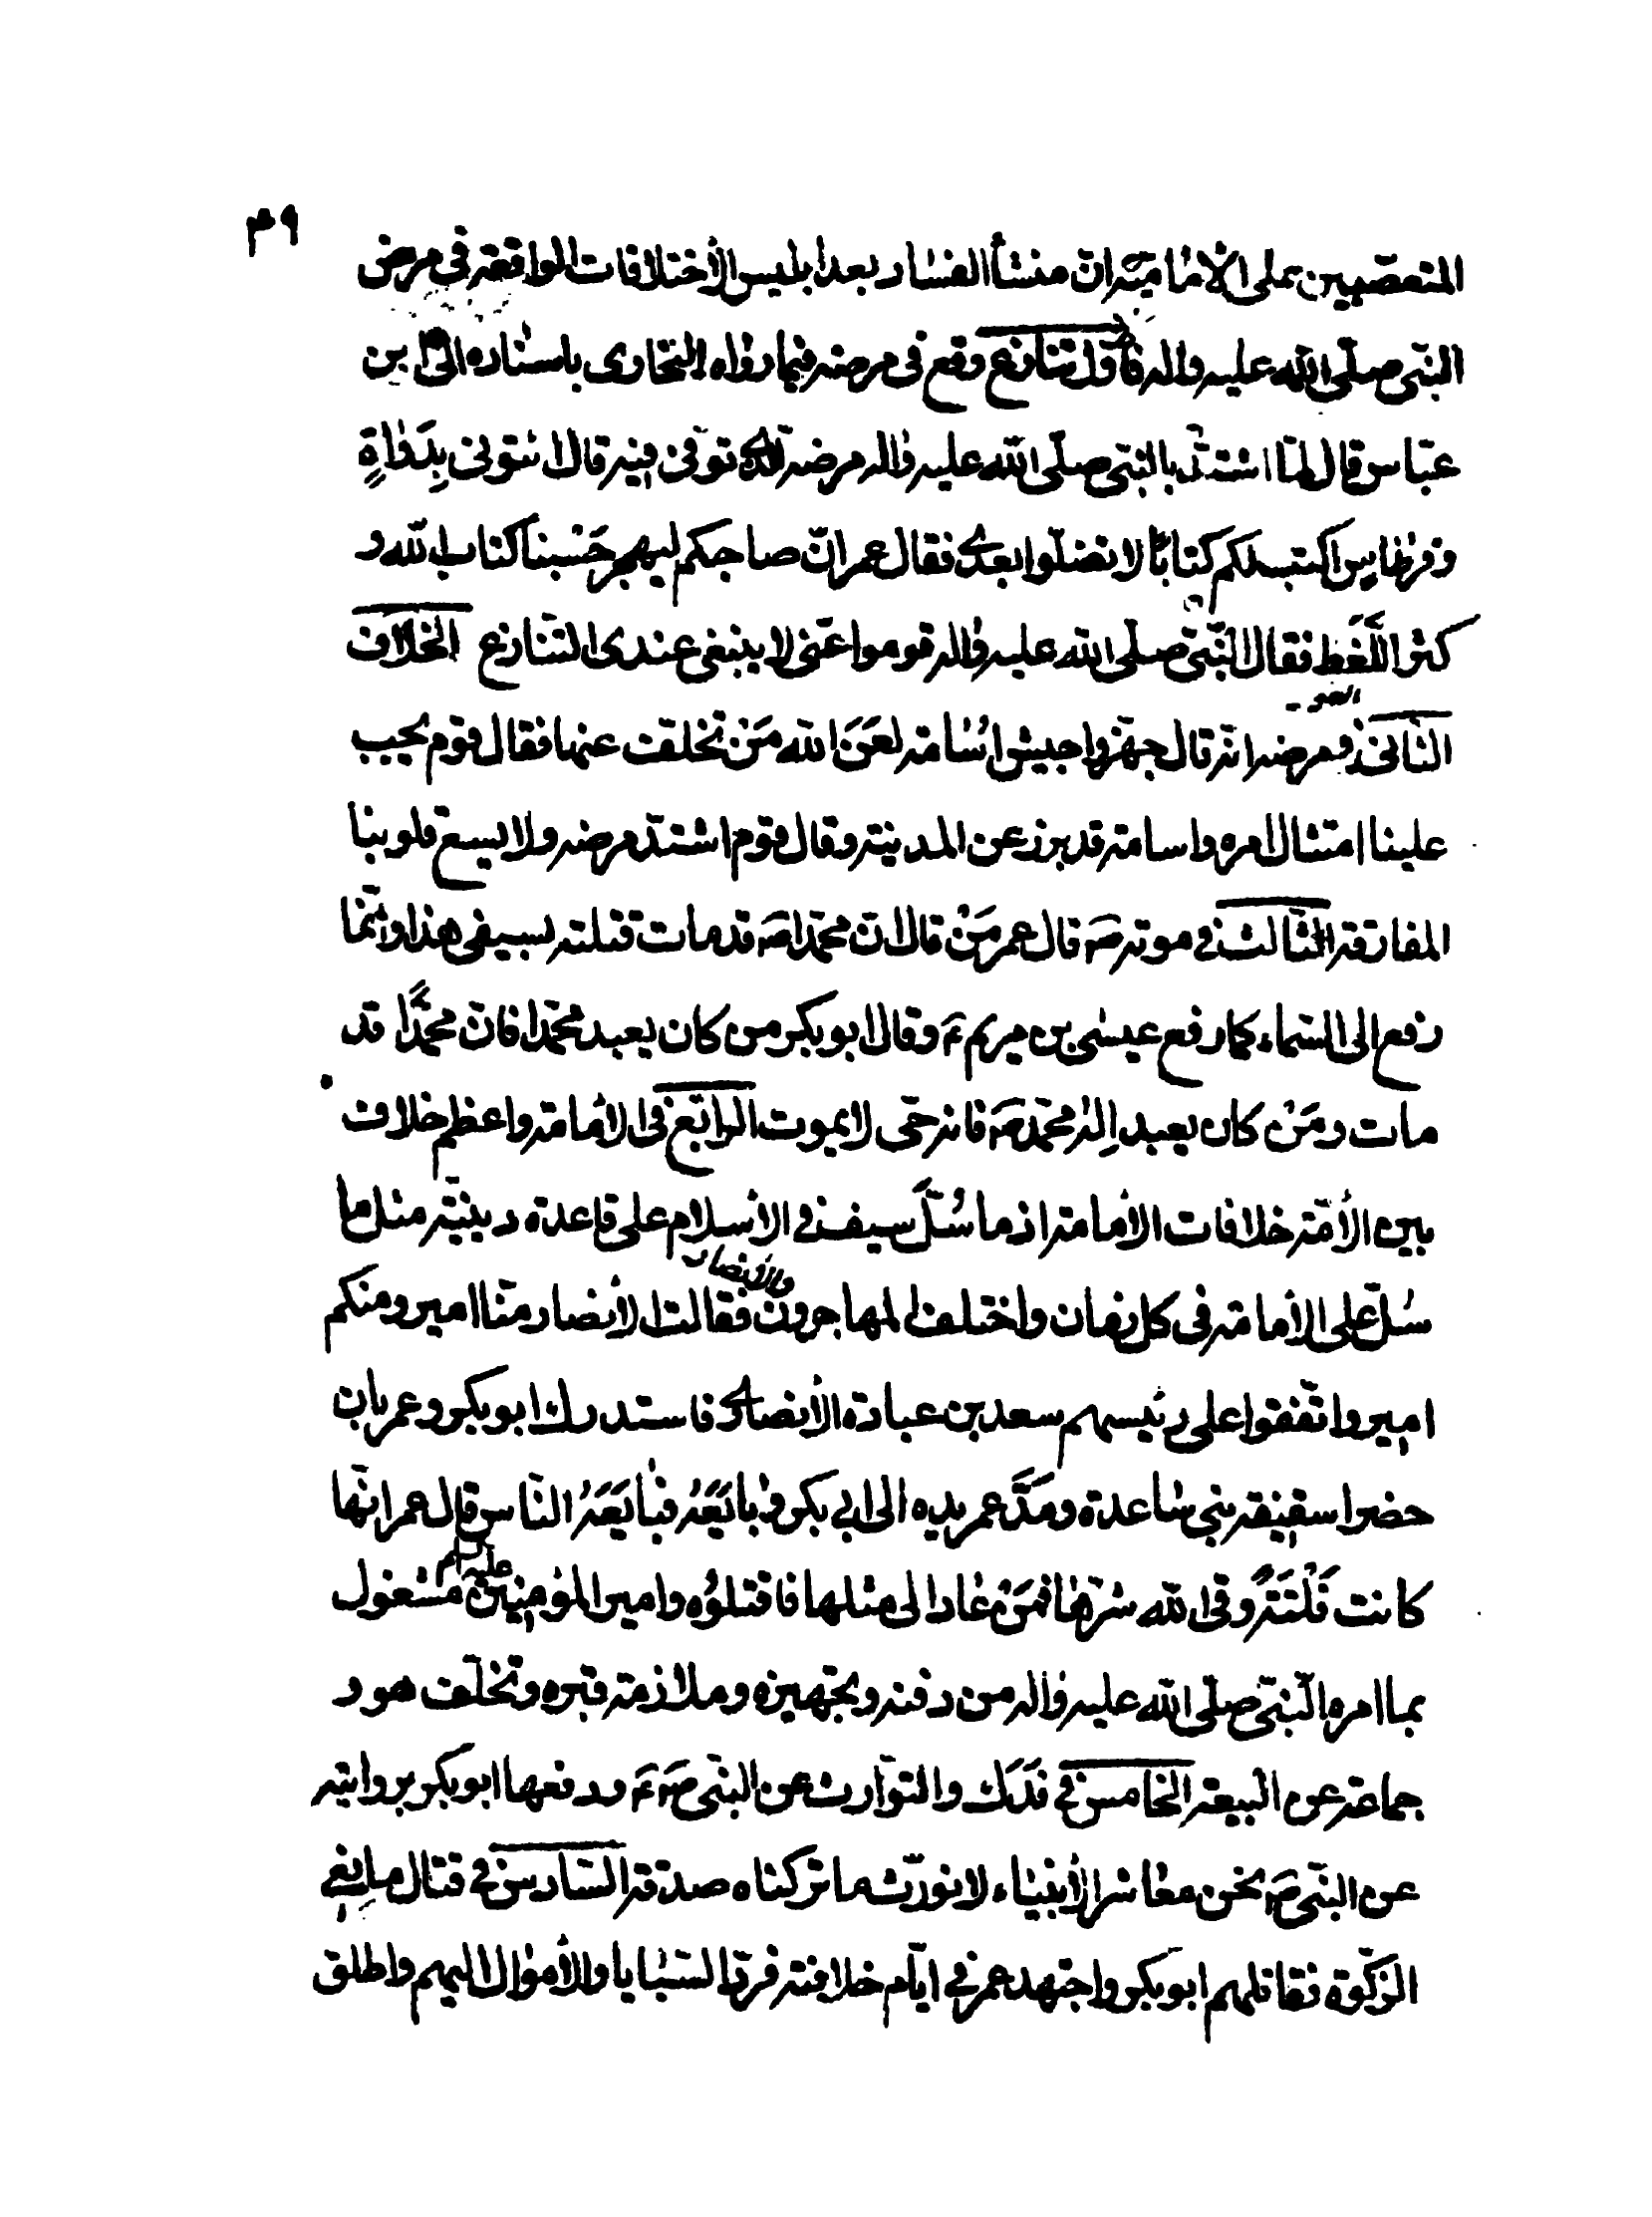 ٣٩
المتعصّبين على الأماميّة انّ منشأ الفساد بعد ابليس الأختلافات الواقعة فى مرض
النبّى صلّى اللّه عليه واله فاوّل تنازع وقع فى مرضه فيما رواه البخارى باسناده الى ابن
عبّاس قال لمّا اشتدّ بالنبّى صلّى اللّه عليه واله مرضه الّذى توفى فيه قال ائتونى بِدَواةٍ
وقرطاس اكتب لكم كتابًا لا تضلّوا بعدى فقال عمر انّ صاحبكم ليهجر حَسْبنا كتاب اللّه و
كثر اللَّغَط فقال النّبىّ صلّى اللّه عليه واله قوموا عنّى لا ينبغى عندى التنازع الخلاف
الثانى فى مرضه انّه قال جهّزوا جيش اُسامة لعَنَ اللّه مَنْ تخلّف عنها فقال قوم يجب
علينا امتثال امره واسامة قد برز عن المدينة وقال قوم اشتدّ مرضه ولا يسع قلوبنا
المفارقة الثالث فى موته صَ قال عمر مَنْ قال انّ محمّدا صَ قد مات قتلته بسيفى هذا وانّما
رفع الى السّماء كما رفع عيسى بن مريم عَ وقال ابو بكر من كان يعبد محمّدا فانّ محمّدًا قد
مات ومَنْ كان يعبد اِله محمّد صَ فانه حىّ لا يموت الرابع فى الأمامة واعظم خلاف
بين الأمّة خلافات الأمامة اذ ما سُلَّ سيف فى الأسلام على قاعدة دينيّة مثل ما
سُلّ على الأمامة فى كل زمان واختلف المهاجرون والأنصار فقالت الأنصار منّا امير ومنكم
امير واتّفقوا على رئيسهم سعد بن عبادة الأنصارى فاستدرك ابو بكر وعمر بان
حضرا سقيفة بنى ساعدة ومَدَّ عمر يده الى ابى بكر وبايَعَهُ فبايَعَهُ النّاس قال عمر انّها
كانت فَلْتَةً وقى اللّه شرّها فمَنْ عاد الى مثلها فاقتلوُه وامير المؤمنين عليه السلام مشغول
بما امره النّبىّ صلّى اللّه عليه واله من دفنه وتجهيزه وملازمة قبره وتخلّف هو و
جماعة عن البيعة الخامس فى فدَك والتوارث عن النبّى صَ عَ ودفعها ابو بكر بروايته
عن النبّى صَ نحن معاشر الأنبياء لا نورّث ما تركناه صدقة السّادس فى قتال مانعى
الزكوة فقاتلهم ابو بكر واجتهد عمر فى ايّام خلافته فردّ السّبايا والأموال اليهم واطلق